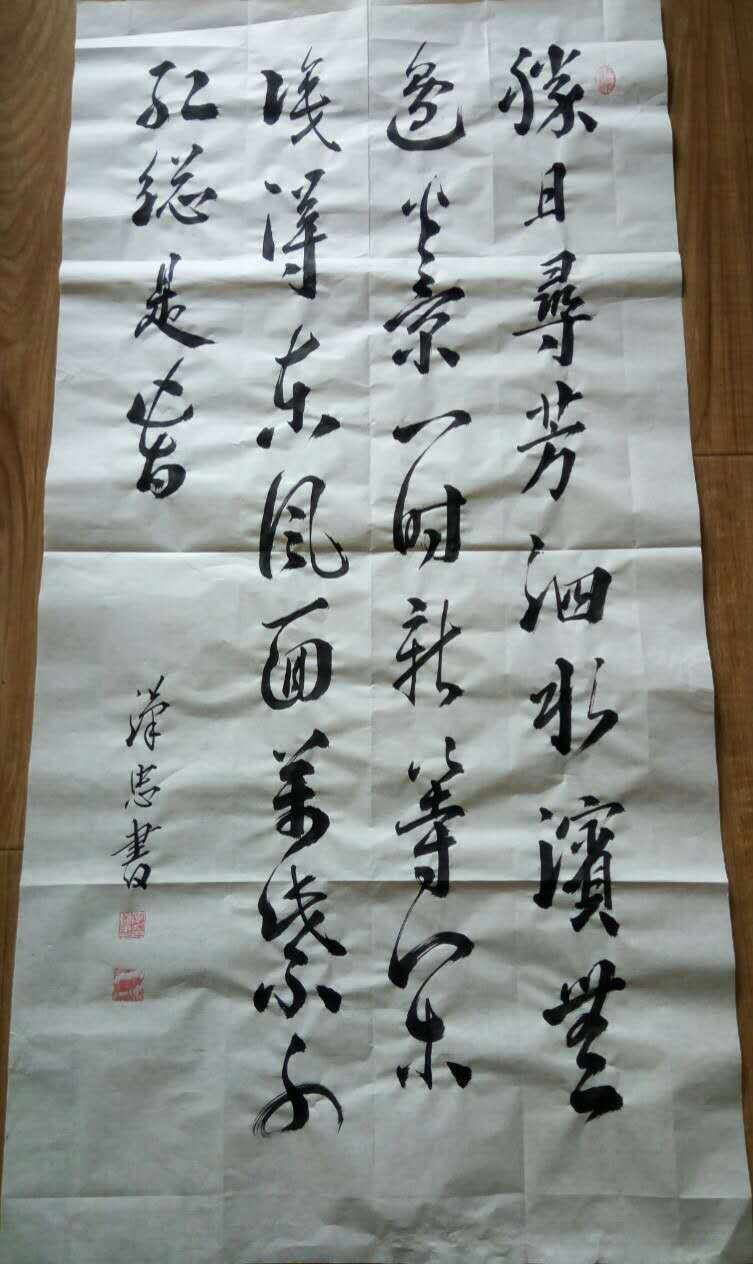 勝日尋芳泗水濱無
邊光景一時新等閑
識得東風面萬紫千
紅總是春
漢忠書